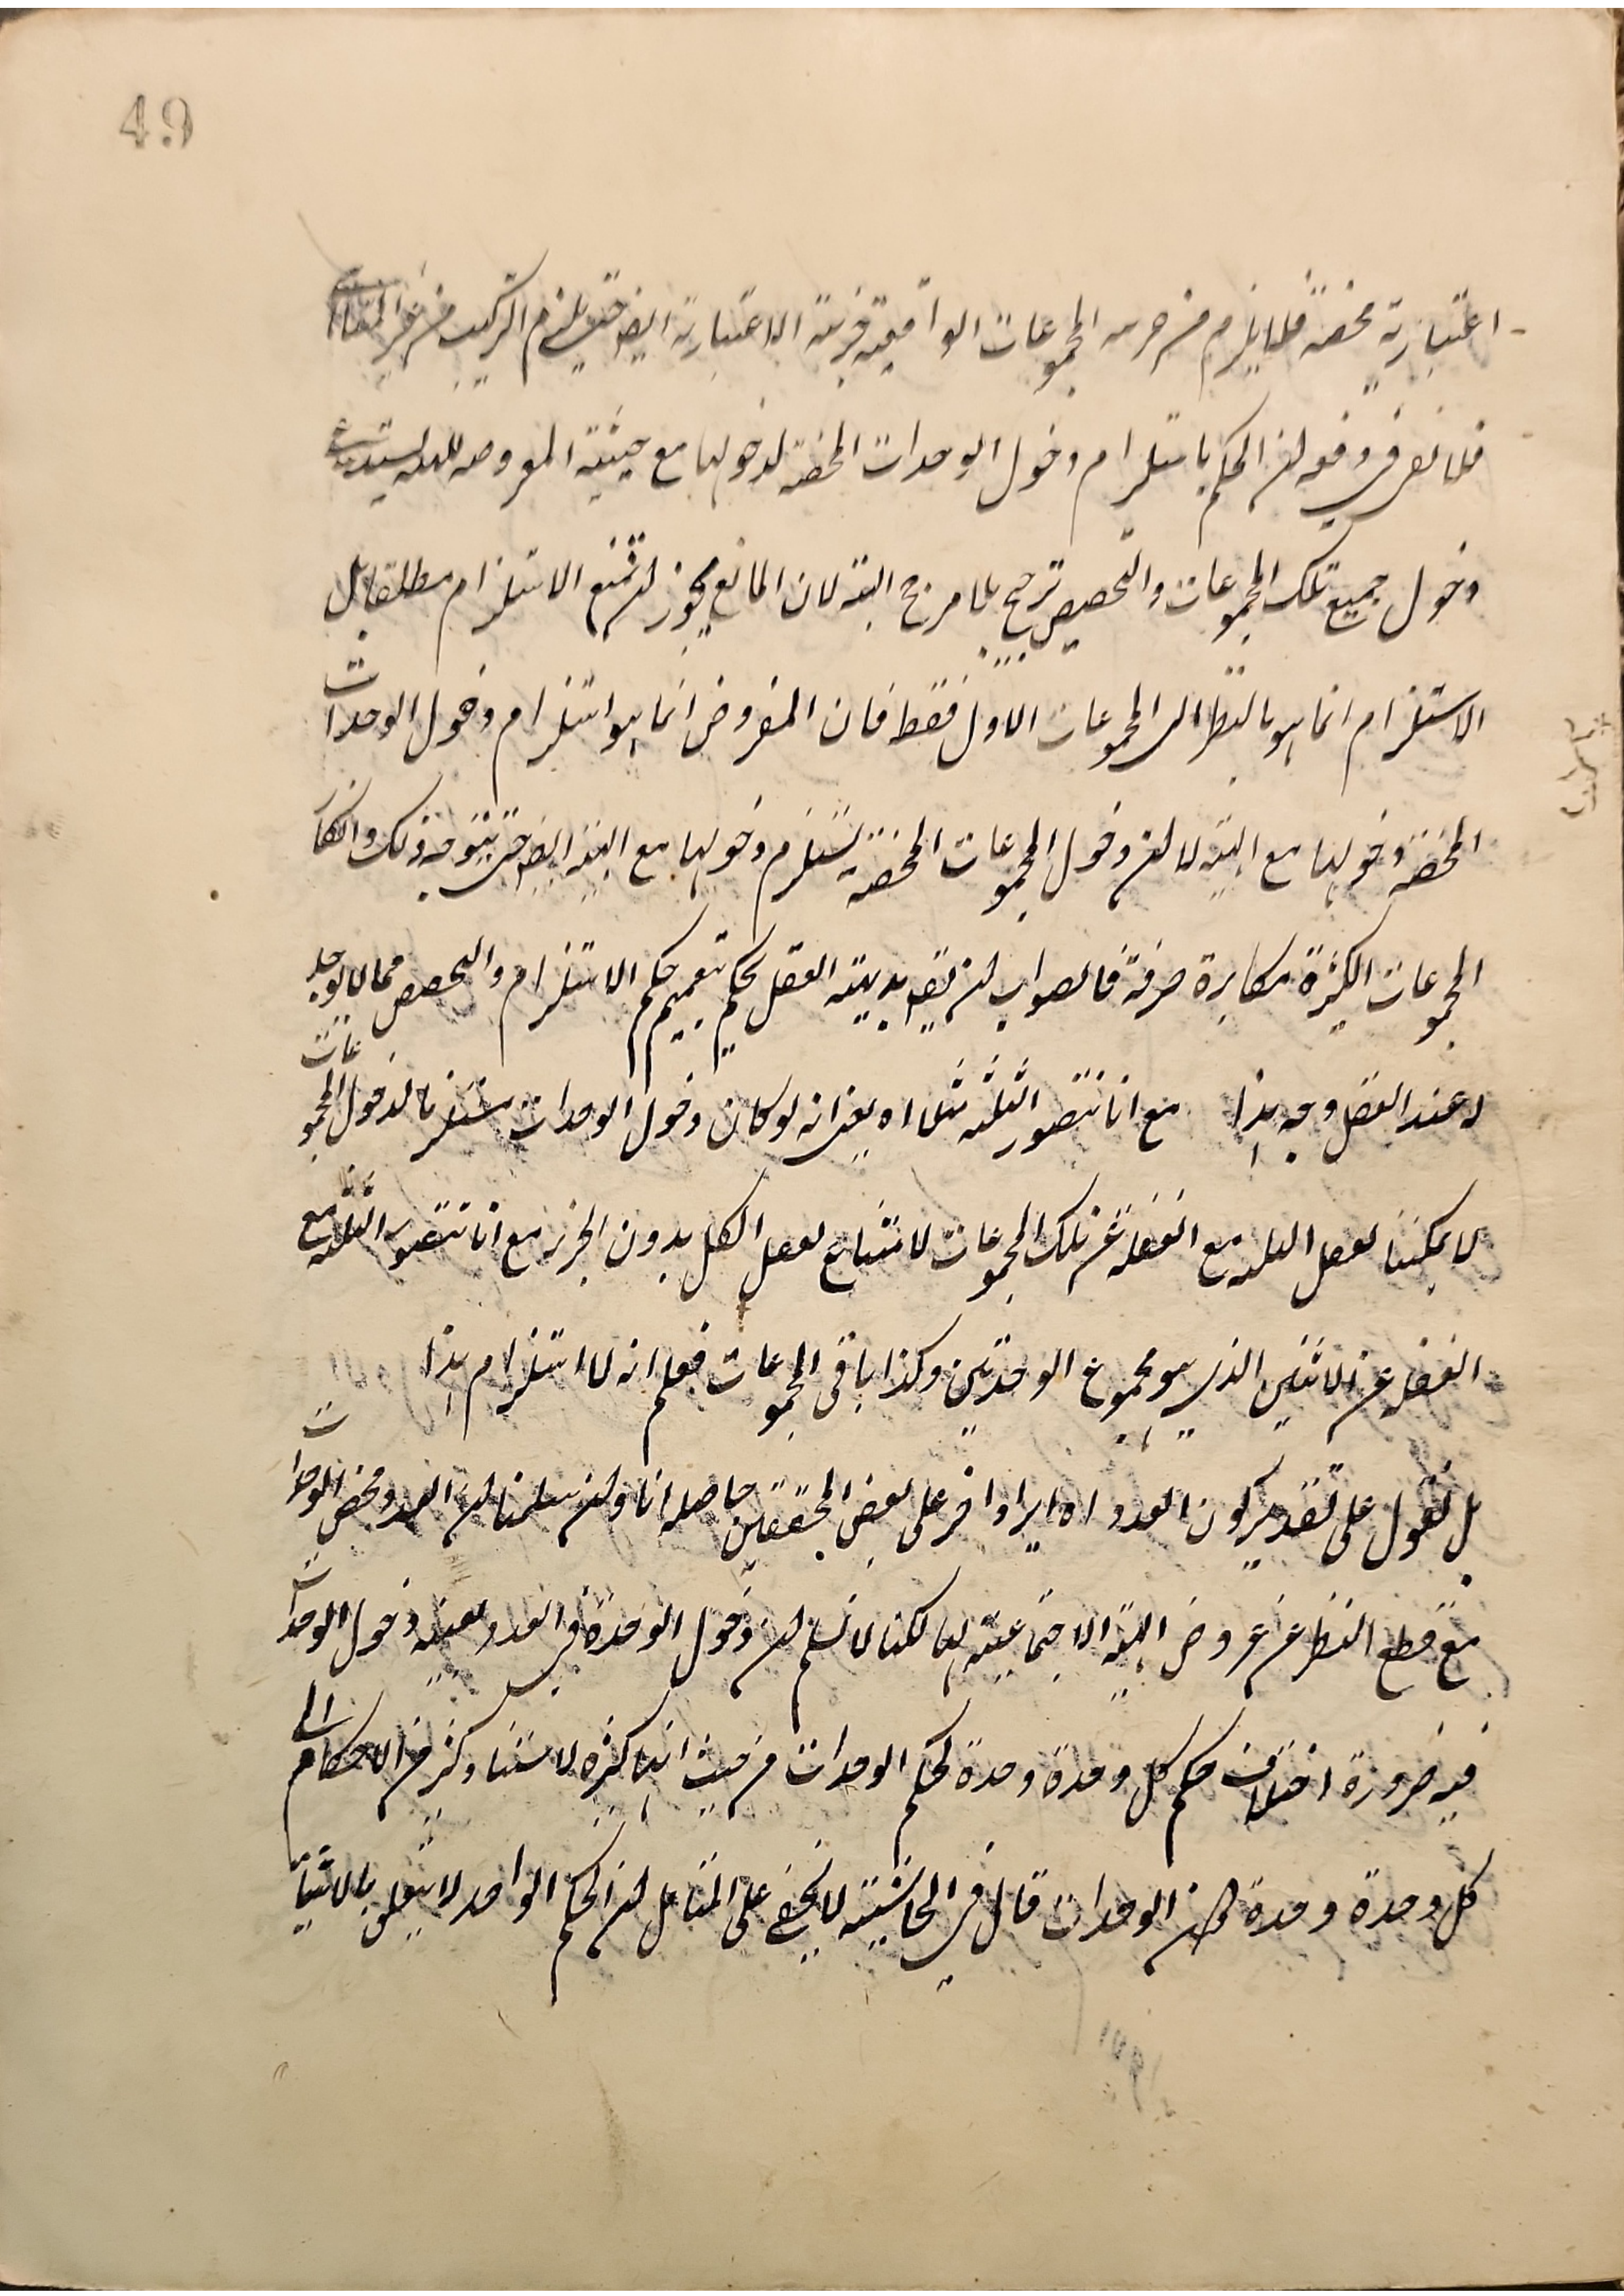 49
اعتبارية محضة فلا يلزم من جزئية المجموعات الواقعية جزئية الاعتبارية ايضا حتى يلزم التركيب من غير المتناهى
دخول جميع تلك المجموعات والتخصيص ترجيح بلا مرجح البتة لان المانع يجوز ان يمنع الاستلزام مطلقا بل
الاستلزام انما هو بالنظر الى المجموعات الاول فقط فان المفروض انما هو استلزام دخول الوحدات
المحضة دخولها مع الهيئة لا ان دخول المجموعات المحضة يستلزم دخولها مع الهيئة ايضا حتى يتوجه ذلك وانكار
المجموعات الكثيرة مكابرة صرفة فالصواب ان يقال بديهة العقل يحكم بتعميم حكم الاستلزام والتخصيص مما لا يوجد
له عند العقل وجه هذا مع انا نتصور الثلثة مثلا اه يعنى انه لو كان دخول الوحدات مستلزما لدخول المجموعات
لا يمكننا تعقل الثلثة مع الغفلة عن تلك المجموعات لامتناع تعقل الكل بدون الجزء مع انا نتصور الثلثة مع
الغفلة عن الاثنين الذى هو مجموع الوحدتين وكذا باقى المجموعات فعلم انه لا استلزام هذا
بل نقول على تقدير كون العدد اه ايراد اخر على بعض المحققين حاصله انا وان سلمنا ان العدد محض الوحدات
مع قطع النظر عن عروض الهيئة الاجتماعية لها لكنا لا نسلم ان دخول الوحدة فى العدد بعينه دخول الوحدات
فيه ضرورة اختلاف حكم كل وحدة وحدة لحكم الوحدات من حيث انها كثيرة لاستناد كثير من الاحكام الى
كل وحدة وحدة من الوحدات قال فى الحاشية لا يخفى على المتامل ان الحكم الواحد لا يتعلق بالاشياء